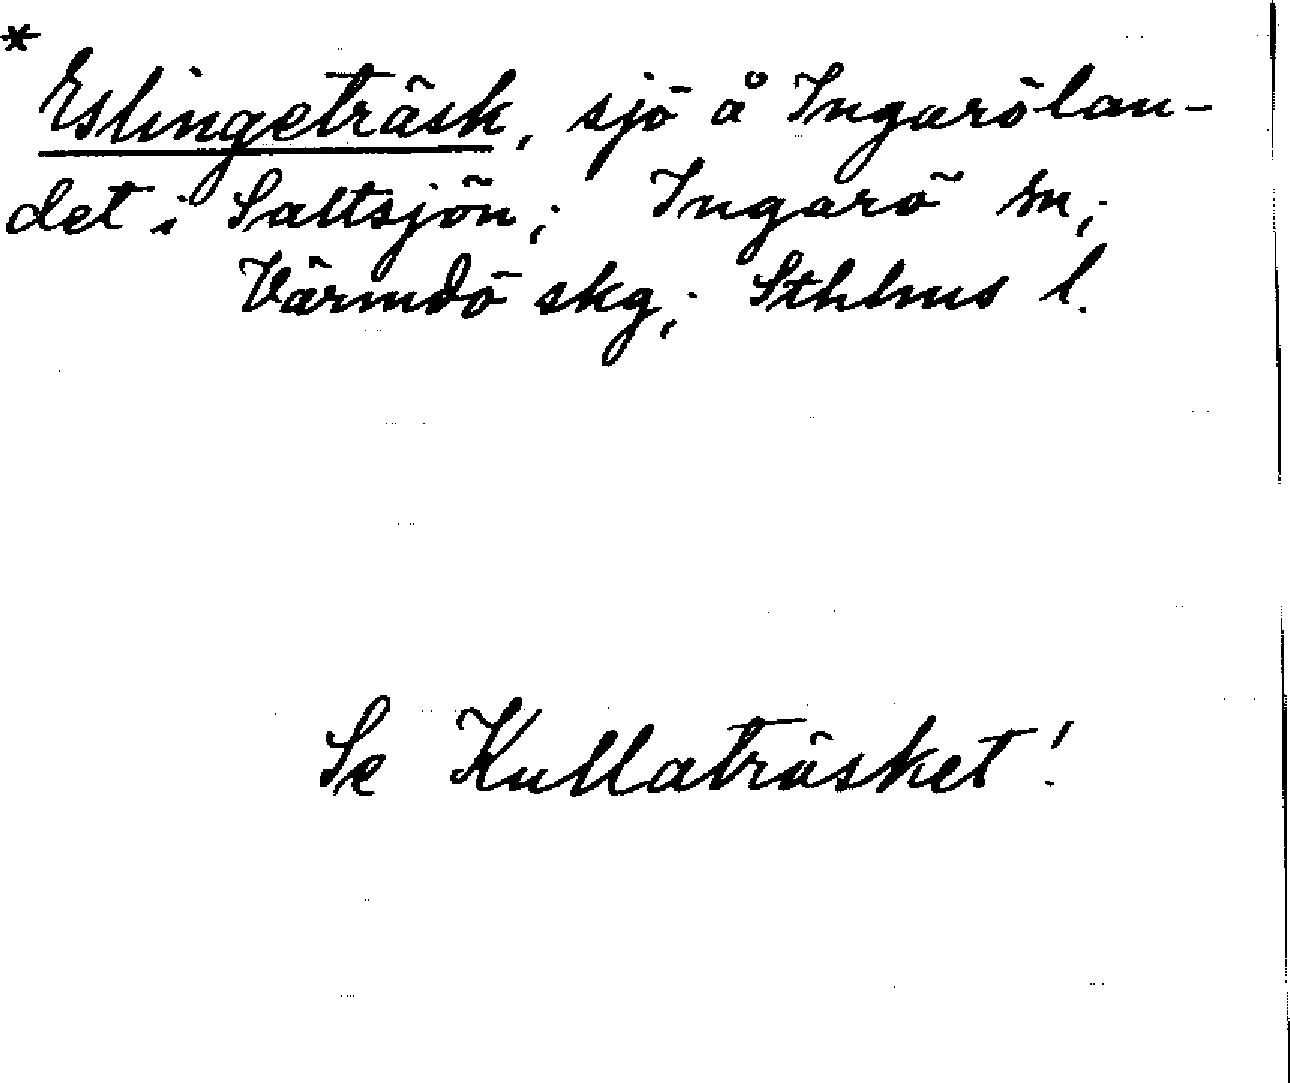 *
Eslingeträsk, sjö å Ingarölan-
det i Saltsjön; Ingarö sn;
Värmdö skg; Sthlms l.
Se Kullaträsket!